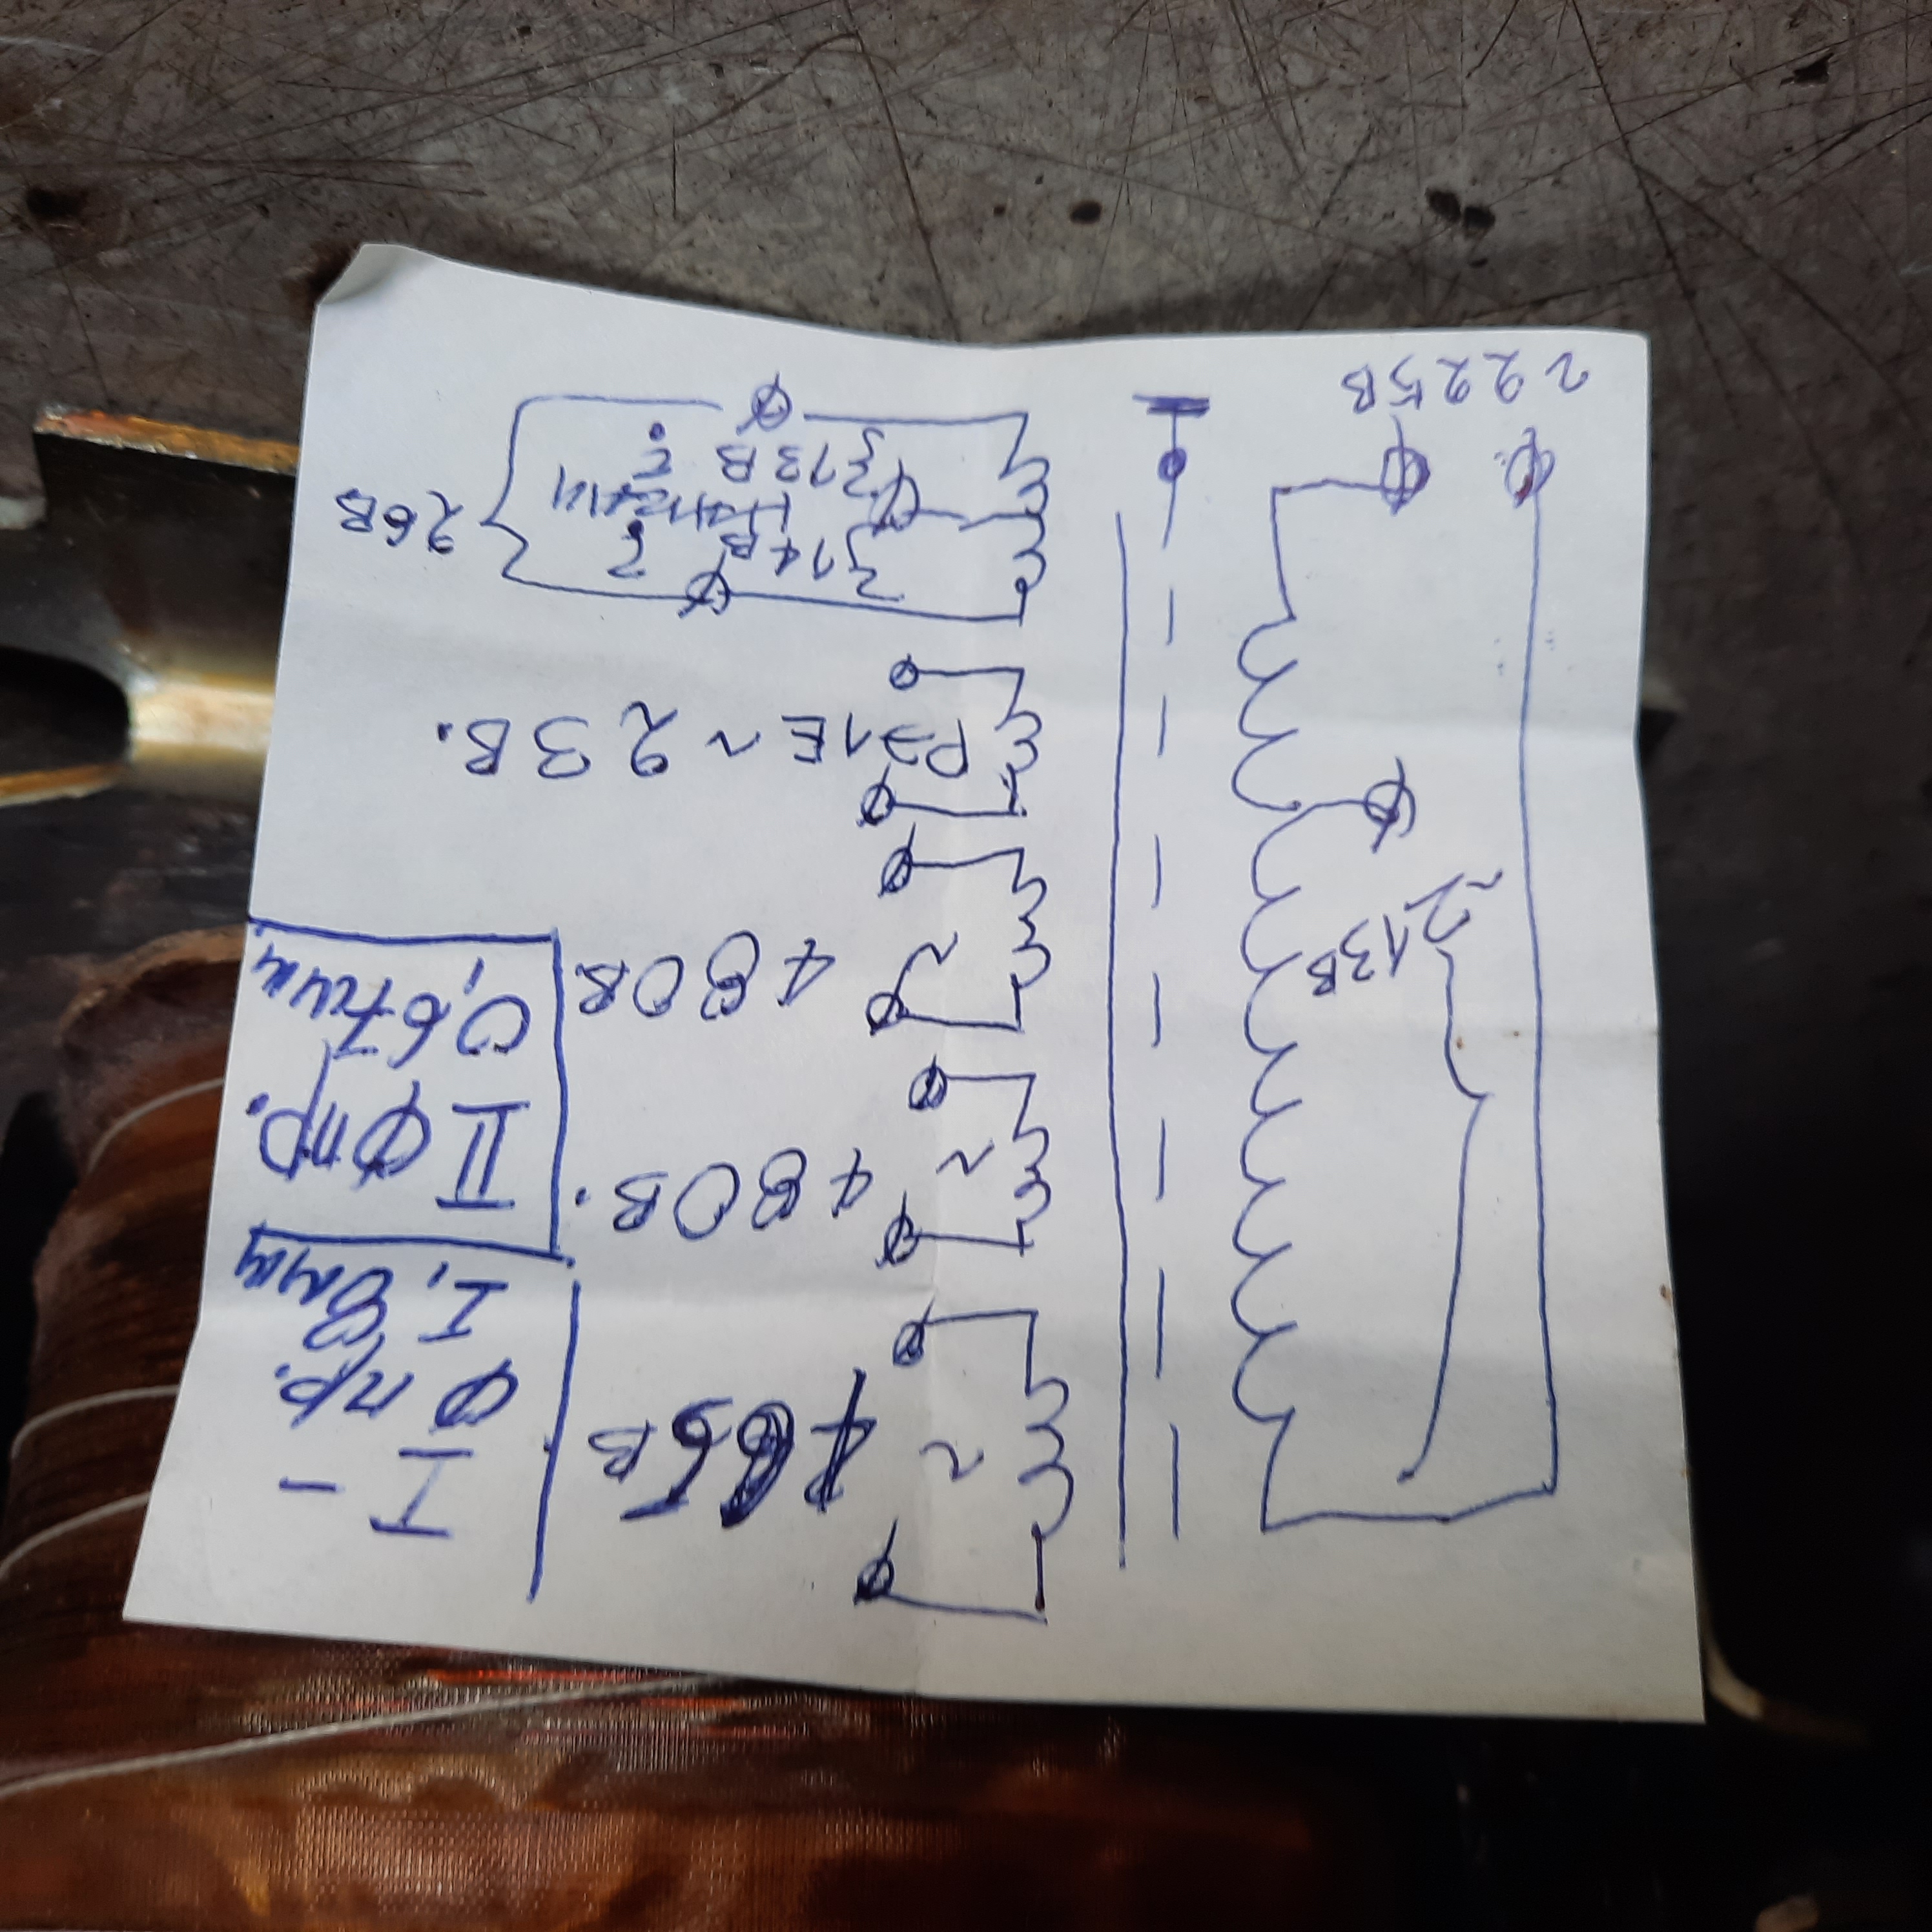 I -
Ф пр.
1,8мм
~ 480В.
II Фпр.
0,67мм
~ 480В.
~213В
РЭЛЕ ~ 23В.
~14В
26В
~13В
~225В